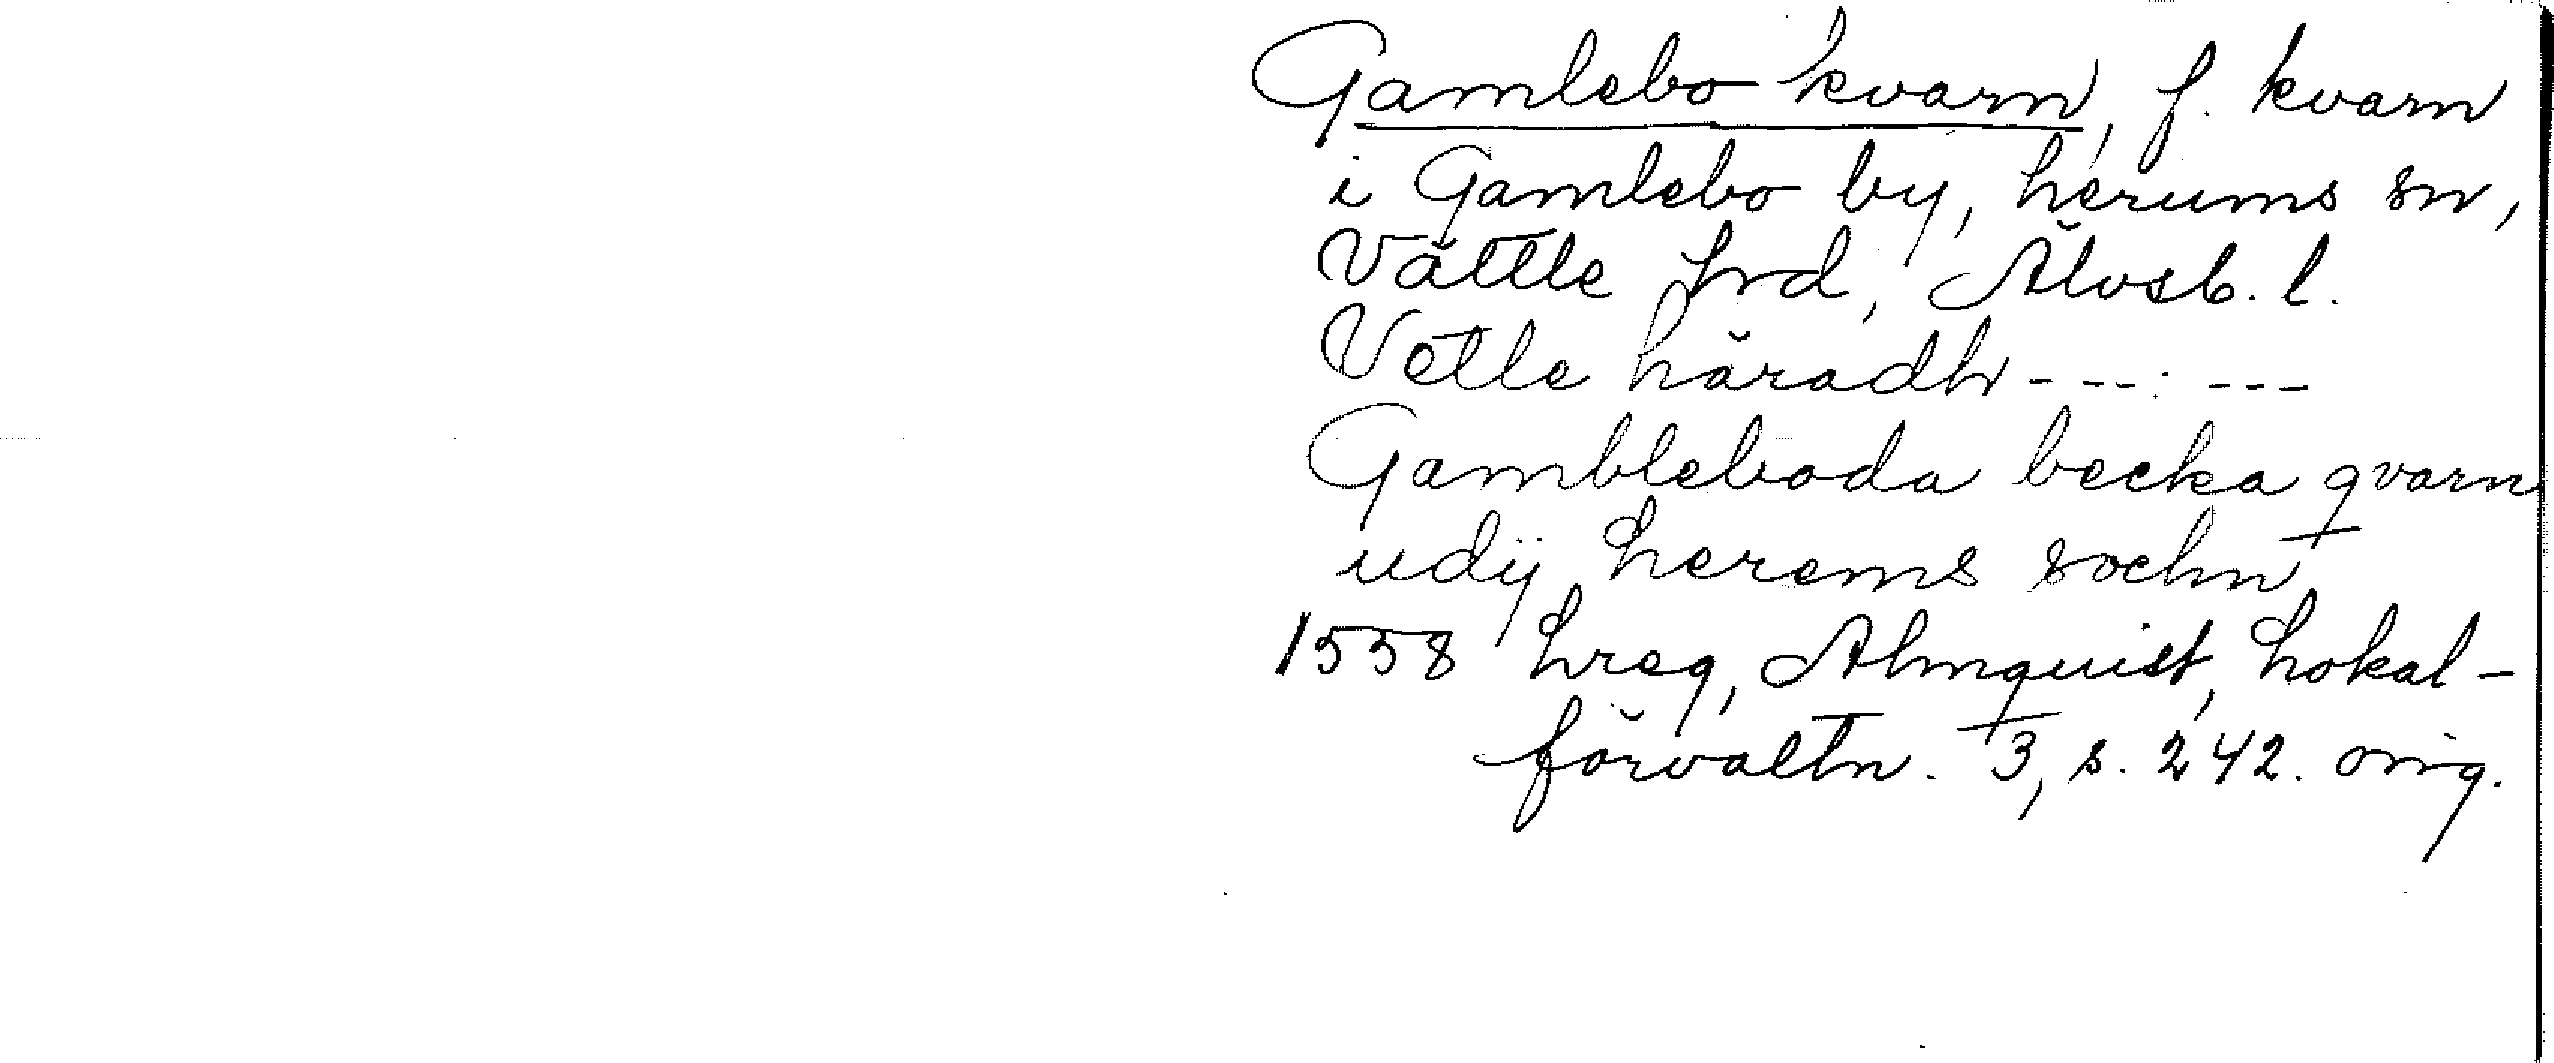 Gamlebo kvarn, f. kvarn
i Gamlebo by, Lerums sn,
Vättle hrd, Älvsb. l.
Vetle häradh - - - : - - -
Gambleboda becka qvarn
udij Lerems sochn
1558 Lreg, Almquist, Lokal-
förvaltn. 3, s. 242. orig.